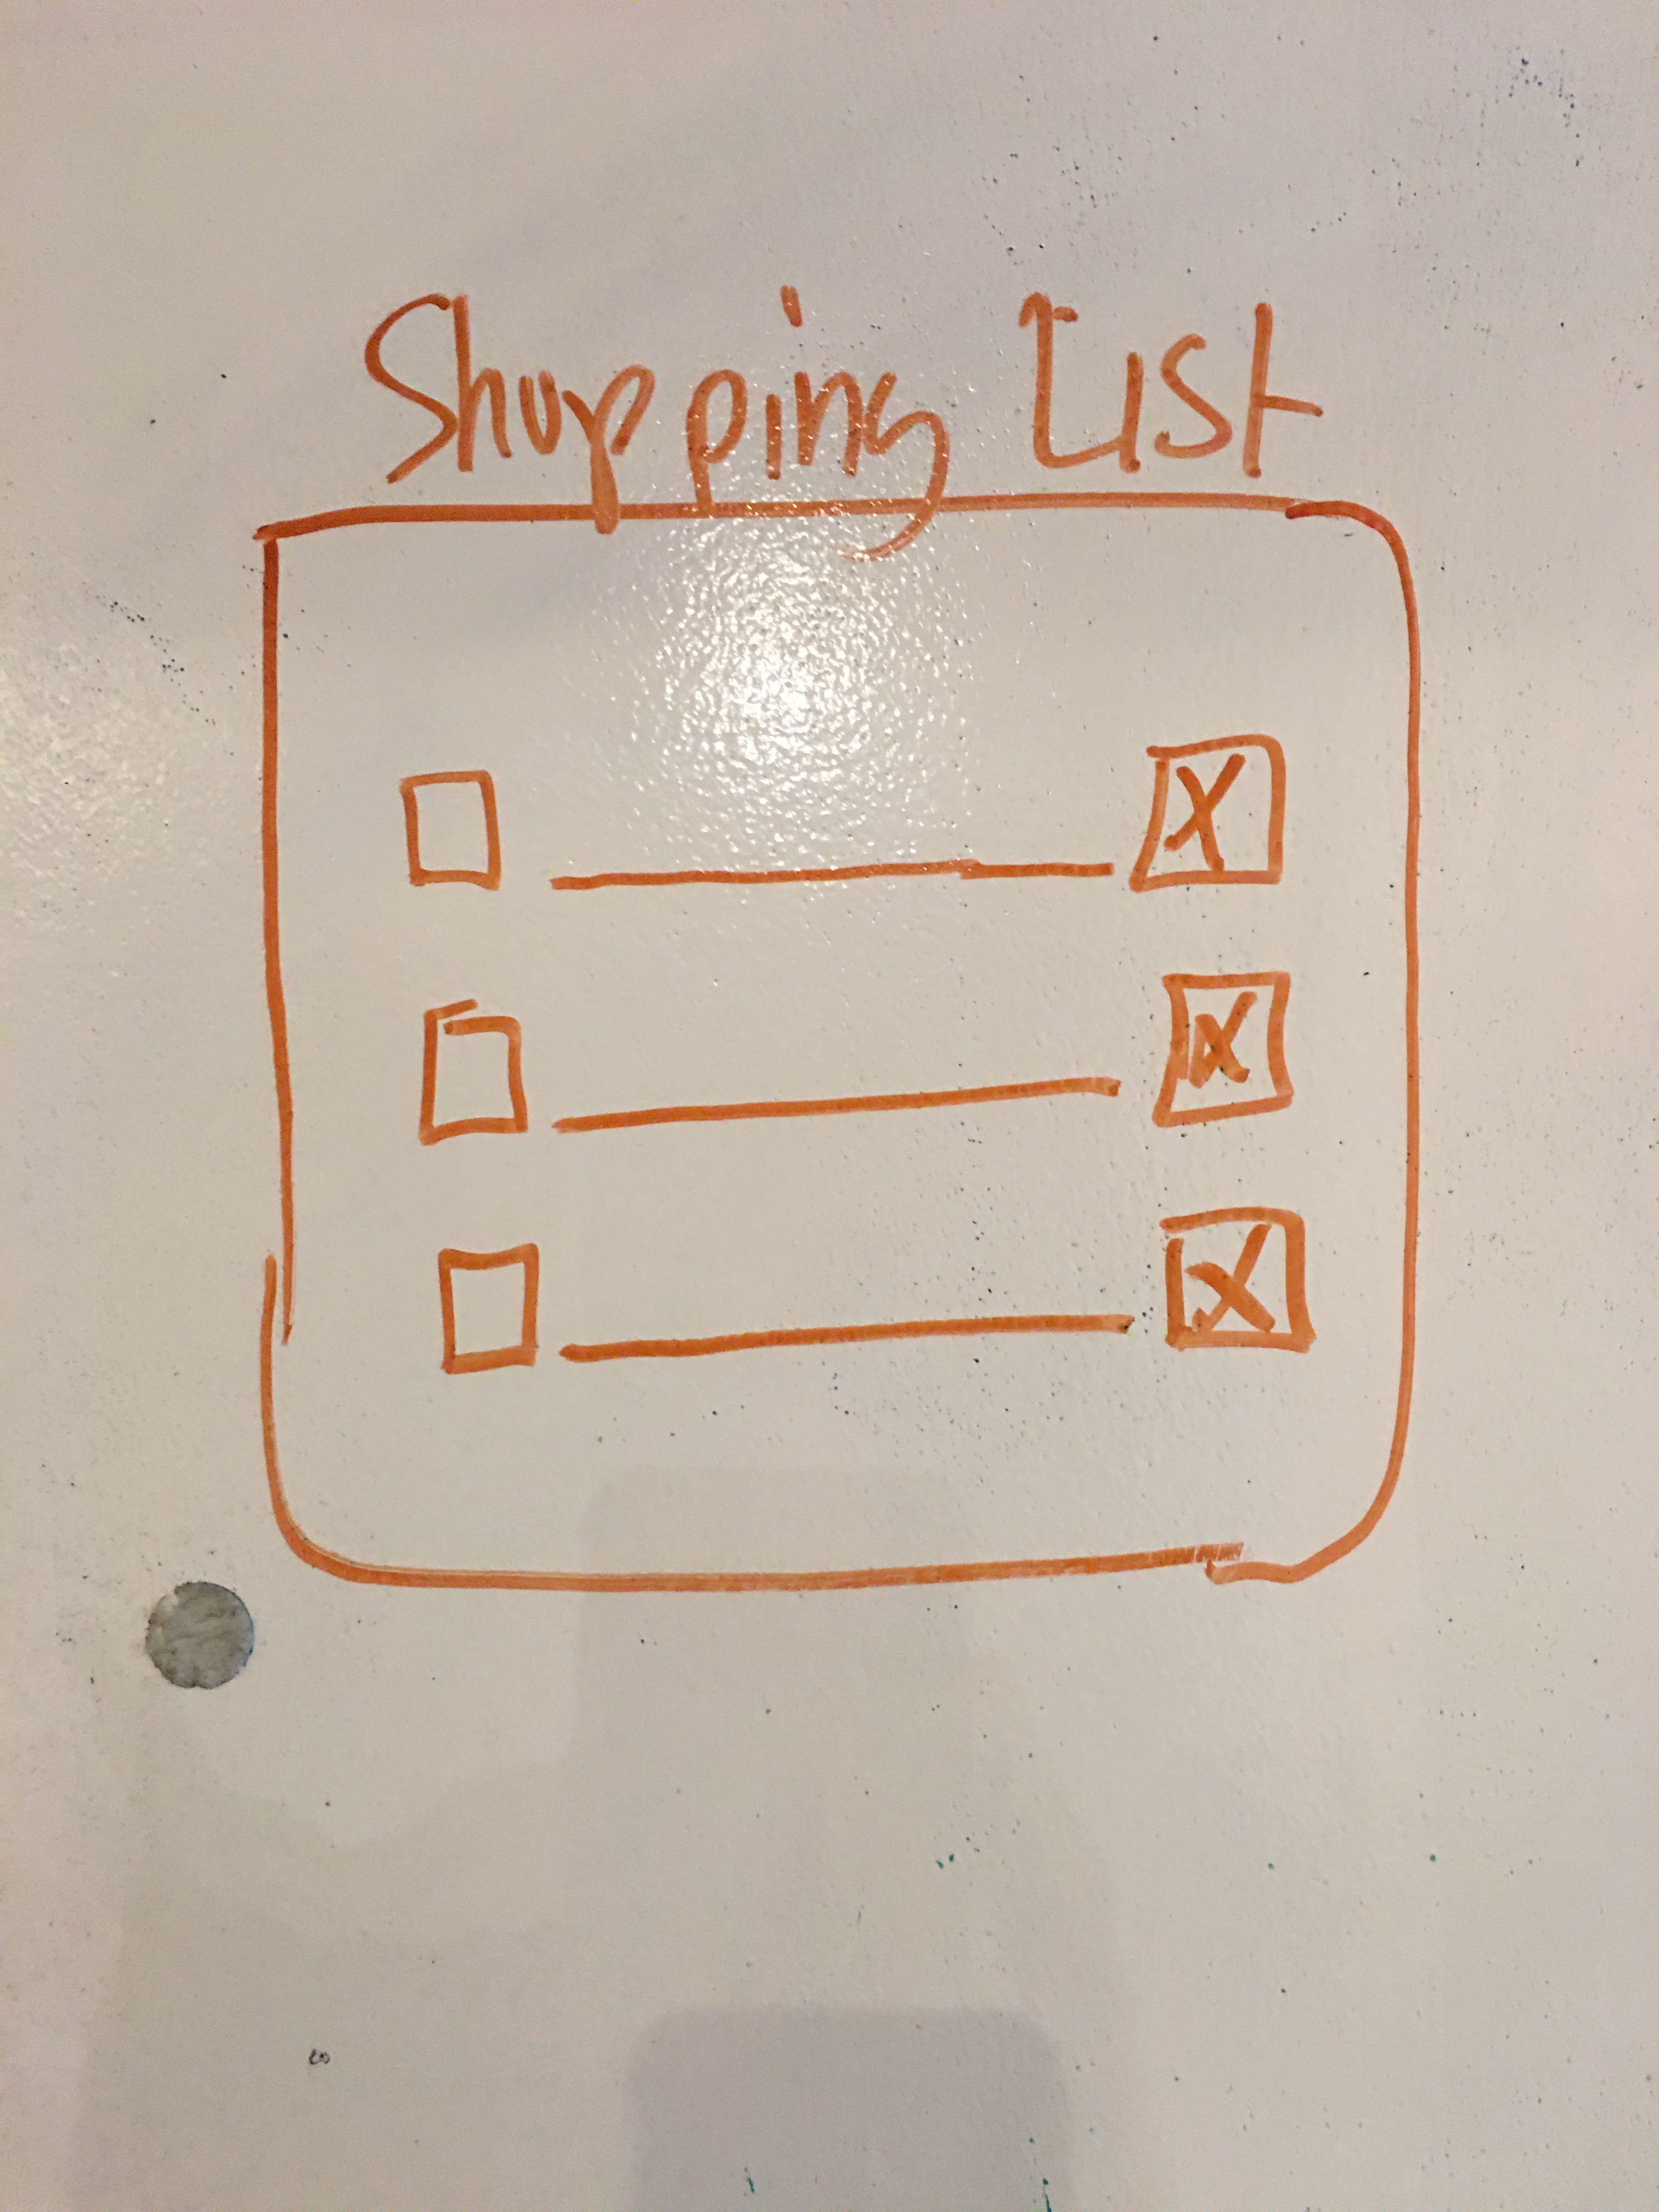 Shopping List
X
X
X